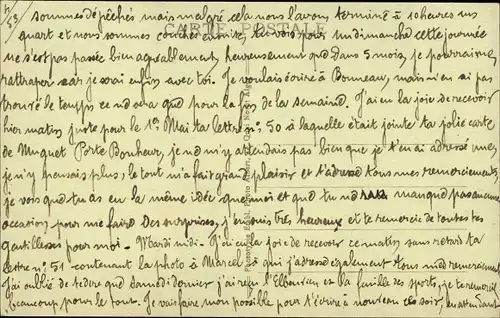 53
CARTE POSTALE
sommes dépêchés mais malgré cela nous l'avons terminé à 10 heures un
quart et nous sommes couchés ensuite, tu vois pour un dimanche cette journée
ne s'est pas passée bien agréablement, heureusement que dans 5 mois, je pourrai me
rattraper car je serai enfin avec toi. Je voulais écrire à Bonneau, mais n'en ai pas
trouvé le temps ce ne sera que pour la fin de la semaine. J'ai eu la joie de recevoir
hier matin, juste pour le 1er Mai ta lettre no. 50 à laquelle était jointe ta jolie carte
de Muguet Porte Bonheur, je ne m'y attendais pas bien que je t'en ai adressé une,
je n'y pensais plus, le tout m'a fait grand plaisir et t'adresse tous mes remerciements
je vois que tu as eu la même idée que moi et que tu ne manque pas aucune
occasion, pour me faire des surprises, j'en suis très heureux et te remercie de toutes tes
gentillesses pour moi. - Mardi midi - J'ai eu la joie de recevoir ce matin, sans retard ta
lettre no. 51 contenant la photo à Marcel à qui j'adresse également tous mes remerciements
J'ai oublié de te dire que samedi dernier j'ai reçu l'Elbeuvien et la feuille des sports, je te remercie
beaucoup pour le tout. Je vais faire mon possible pour t'écrire à nouveau ce soir, en attendant